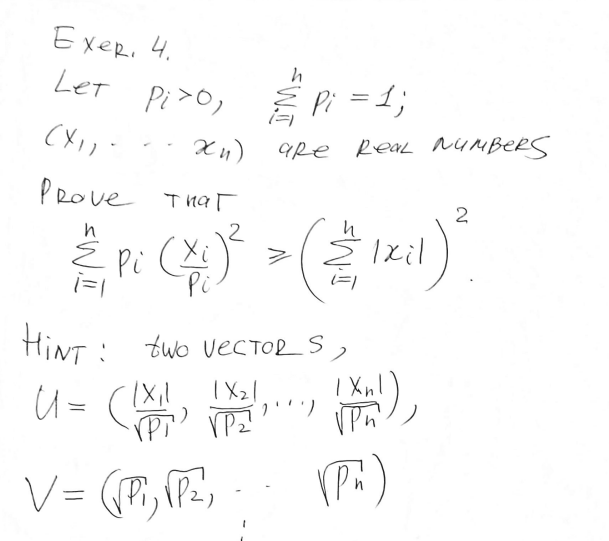 Exer. 4.
Let pi>0, n Σ i=1 pi = 1;
(x1, . . . xn) are real numbers
Prove that
n Σ i=1 pi (xi/pi)² ≥ (n Σ i=1 |xi|)².
Hint: two vectors,
U = (|x1|/√p1, |x2|/√p2, ..., |xn|/√pn),
V = (√p1, √p2, . . √pn)